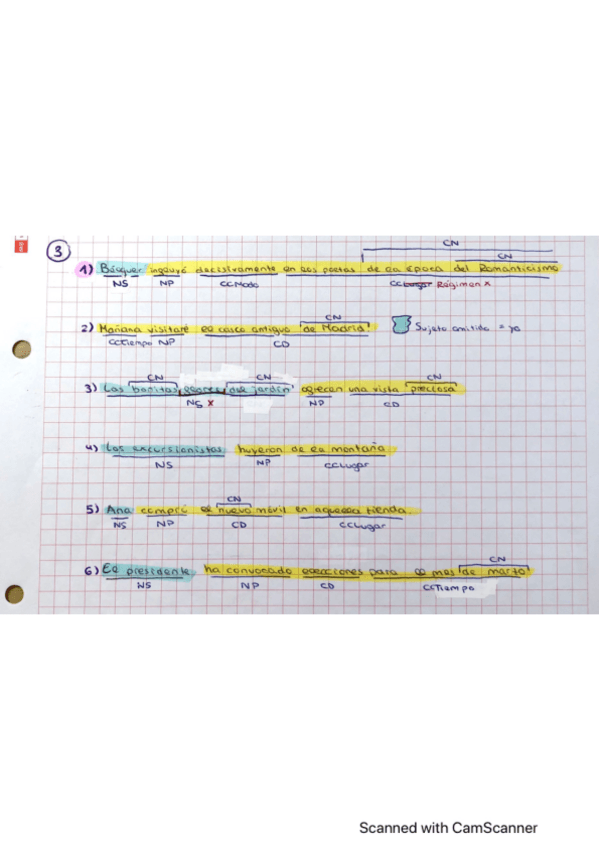 3
CN
CN
1) Bécquer influyó decisivamente en los poetas de la época del Romanticismo
NS NP CCModo CCLugar Régimen x
CN
2) Mañana visitaré el casco antiguo de Madrid. Sujeto omitido = yo
CCTiempo NP CD
CN CN CN
3) Las bonitas flores del jardín ofrecen una vista preciosa
NS x NP CD
4) Los excursionistas huyeron de la montaña.
NS NP CCLugar
CN
5) Ana compró el nuevo móvil en aquella tienda.
NS NP CD CCLugar
CN
6) El presidente ha convocado elecciones para el mes de marzo
NS NP CD CCTiempo
Scanned with CamScanner